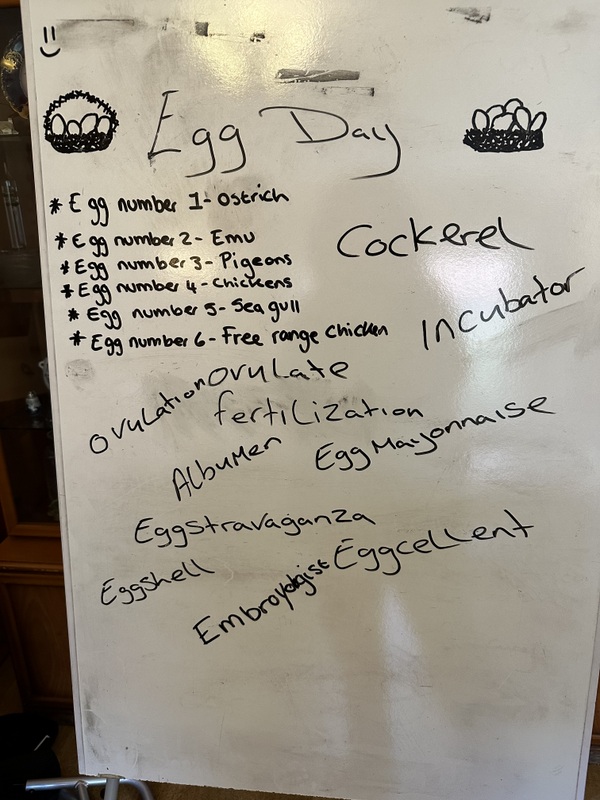 Egg Day
* Egg number 1- Ostrich
* Egg number 2- Emu
* Egg number 3- Pigeons
* Egg number 4- Chickens
* Egg number 5- Sea gull
* Egg number 6- Free range chicken
Cockerel
Incubator
Ovulation
Ovulate
fertilization
Albumen
Egg Mayonnaise
Eggstravaganza
Eggshell
Eggcellent
Embroyologist